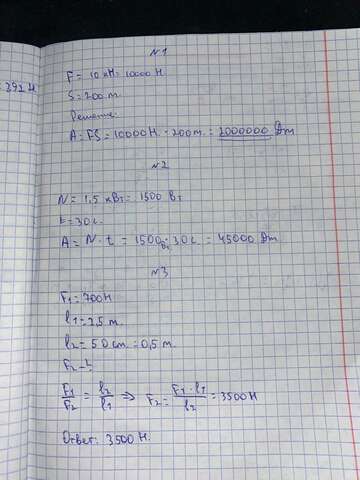 392 Н
N1
F = 10 кН = 10000 Н
S = 200 m.
Решение:
A = FS = 10000 Н · 200 m. = 2000000 Дт
N2
N = 1,5 кВт = 1500 Вт
t = 30 с.
A = N · t = 1500 Вт · 30 с = 45000 Дт
N3
F1 = 700 Н
l1 = 2,5 m.
l2 = 50 cm = 0,5 m.
F2 - ?
F1/F2 = l2/l1 ⇒ F2 = F1 · l1/l2 = 3500 Н
Ответ: 3500 Н.